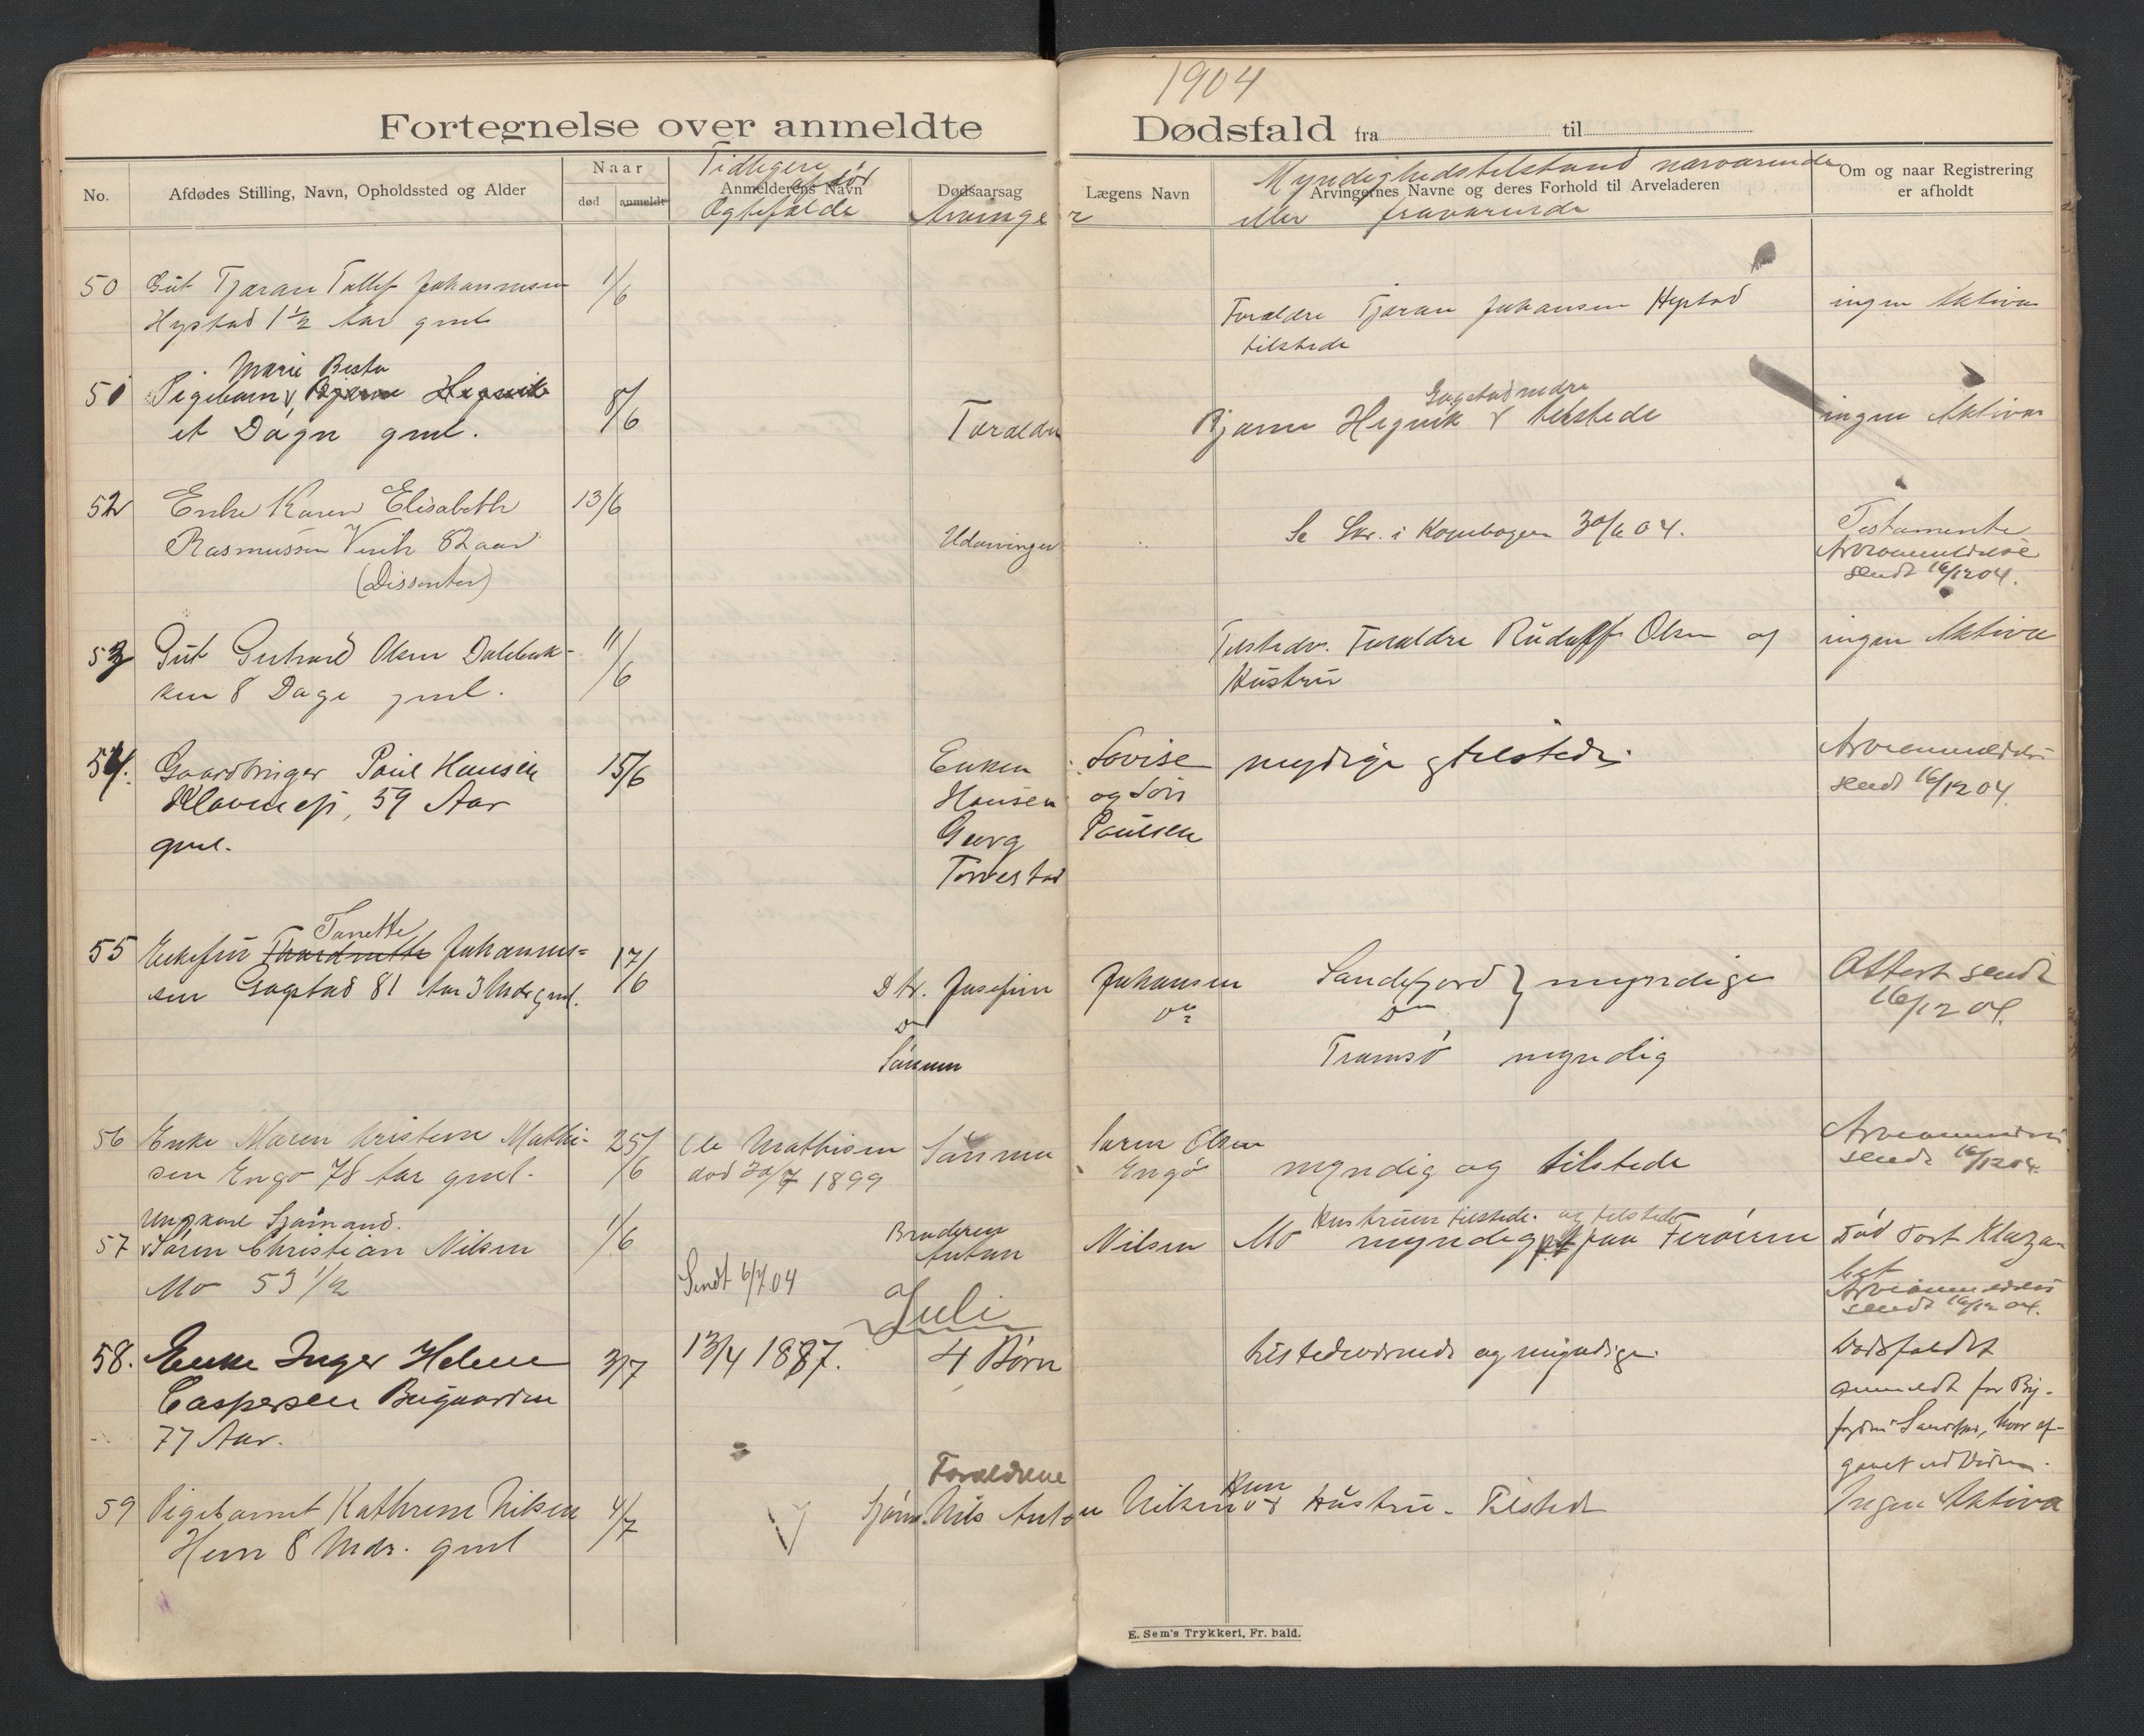 1904
Fortegnelse over anmeldte Dødsfald fra til
No.
Afdødes Stilling, Navn, Opholdssted og Alder
Naar
død
anmeldt
Tidligere
Anmelderens Navn
afdöd
Ogtefælde
Dødsaarsag
Arvinger
Lægens Navn
Myndighedstilstand nærværende
Arvingernes Navne og deres Forhold til Arveladeren
eller fraværende
Om og naar Registrering
er afholdt
50 Gut Tjøran Tollef Johannesen 1/6
Hystad 1 1/2 Aar gml
Forældre Tjøran Johansen Hystad ingen Aktiva
tilstede
Marie Besta
51 Pigebarn Bjarne Hegnik 8/6
et Døgn gml. Forældre
Gogstad nedre
Bjarne Hegnik tilstede ingen Aktiva
52 Enke Karen Elisabeth 13/6
Rasmussen Virik 82 aar Udarvinger
(Dissenter)
Se Skr. i Kopibogen 30/6 04.
Testamente
Arveanmeldelse
sendt 16/12 04.
53 Gut Gerhard Olsen Dalebak- 11/6
ken 8 Dage gml.
Tilstedv. Forældre Rudolff Olsen og ingen Aktiva
Hustru
54. Gaardbruger Poul Hansen 15/6 Enken Lovise myndige & tilstede.
Klavenes, 59 Aar Hansen og Sön
gml. Georg Poulsen
Torvestad
Arveanmeldelse
sendt 16/12 04.
Tonette
55 Enkefru Johannes=
sen Gogstad 81 Aar 3 Mdr gml. 17/6
Dtr. Josefine Johansen Sandefjord } myndige
Do Do Do
Sönnen Tromsö myndig
Attest sendt
16/12 04.
56 Enke Maren Kristine Mathi- 25/6 Ole Mathisen Sönnen Soren Olsen
sen Engø 78 Aar gml. död 30/7 1899 Engø myndig og tilstede
Arveanmeldelse
sendt 16/12 04.
Ungkarl Sjømand.
57 Sören Christian Nilsen 1/6
Mo 53 1/2
Sendt 6/7 04
Broderen
Anton Nilsen Mo
Hustruen tilstede. og tilstede
myndig paa Færöerne
Död Fort
Arveanmeldelse
sendt 16/12 04.
Juli
58. Enke Inger Helene 3/7 13/4 1887. 4 Börn tilstedeværende og myndige.
Caspersen Bugaarden
77 Aar.
Dødsfaldet
anmeldt for By-
fogden i Sandefjord, hvor
59 Pigebarnet Kathrine Nilsen 4/7
Hem 8 Mdr. gml
Forældrene
Sjöm. Nils Anton Nilsen Hem og Hustru. Tilstede
Ingen Aktiva
E. Sem's Trykkeri, Fr. hald.